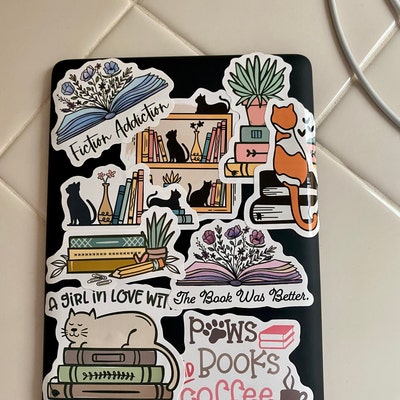 Fiction Addiction
A GIRL IN LOVE
The Book Was Better.
PAWS
BOOKS
COFFEE